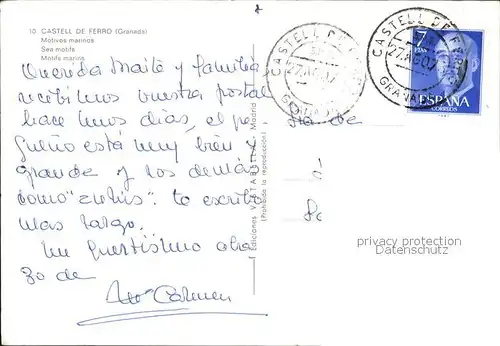 10 CASTELL DE FERRO (Granada)
Motivos marinos
Sea motifs
Motifs marins
Querida Maite y familia
recibimos vuestra postal
hace unos días, el pe
queño está muy bien y
grande y los demás
como
te escribo
mas largo.
Un fuertísimo abra
zo de
Mª Carmen
Ediciones VISTABELLA - Madrid
(Prohibida la reproducción)
CASTELL DE FERRO
27 AGO
GRANADA
CASTELL DE FERRO
27 AGO
GRANADA
7
PTAS
ESPAÑA
CORREOS
privacy protection
Datenschutz